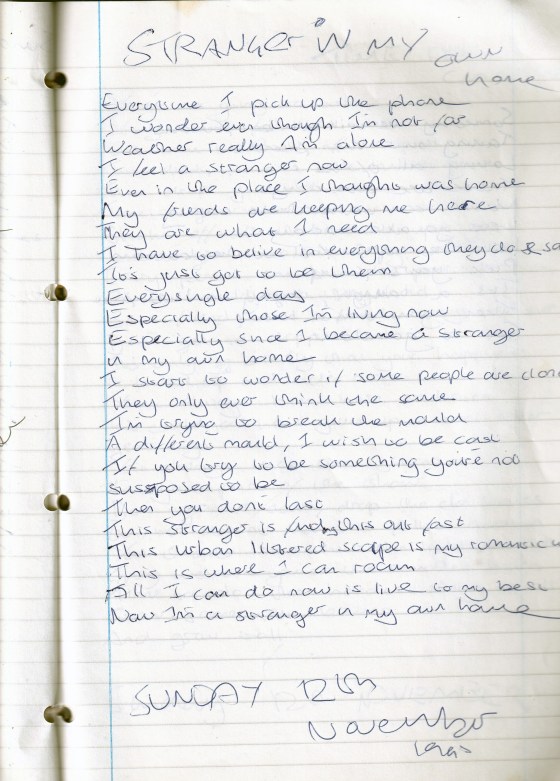 STRANGER IN MY own home
Everytime I pick up the phone
I wonder even though I'm not far
Weather really I'm alone
I feel a stranger now
Even in the place I thought was home
My friends are keeping me here
They are what I need
I have to belive in everything they do & sa
It's just got to be them
Everysingle day
Especially those I'm living now
Especially since I became a stranger
in my own home
I start to wonder if some people are clon
They only ever think the same
I'm trying to break the mould
A different mould, I wish to be cast
If you try to be something you're not
susposed to be
Then you don't last
This stranger is finding this out fast
This urban listered scape is my romantic
This is where I can roam
All I can do now is live to my best
Now I'm a stranger in my own home
SUNDAY 12th
November